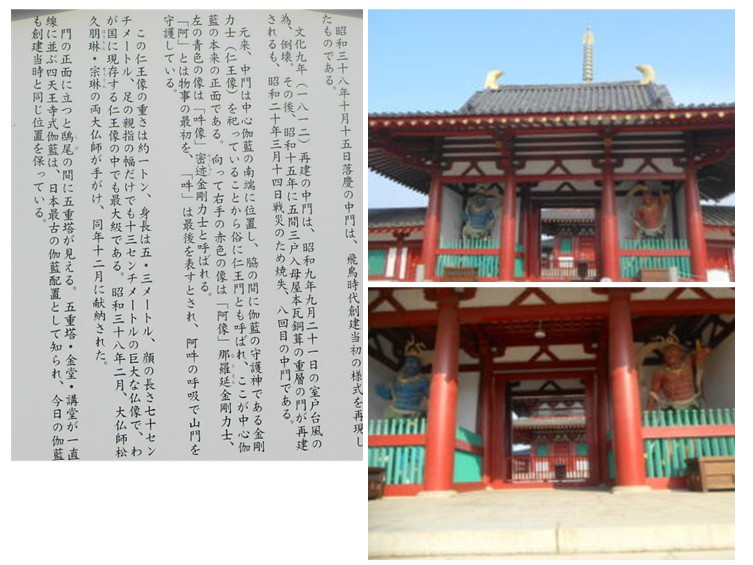 昭和三十八年十月十五日落慶の中門は、飛鳥時代創建当初の様式を再現し
たものである。
文化九年（一八一二）再建の中門は、昭和九年九月二十一日の室戸台風の
為、倒壊。その後、昭和十五年に五間三戸入母屋本瓦銅葺の重層の門が再建
されるも、昭和二十年三月十四日戦災のため焼失、八回目の中門である。
元来、中門は中心伽藍の南端に位置し、脇の間に伽藍の守護神である金剛
力士（仁王像）を祀っていることから俗に仁王門とも呼ばれ、ここが中心伽
藍の本来の正面である。向って右手の赤色の像は「阿像」那羅延金剛力士、
左の青色の像は「吽像」密迹金剛力士と呼ばれる。
「阿」とは物事の最初を、「吽」は最後を表すとされ、阿吽の呼吸で山門を
守護している。
この仁王像の重さは約一トン、身長は五・三メートル、顔の長さ七十セン
チメートル、足の親指の幅だけでも十三センチメートルの巨大な仏像で、わ
が国に現存する仁王像の中でも最大級である。昭和三十八年二月、大仏師松
久朋琳・宗琳の両大仏師が手がけ、同年十二月に献納された。
門の正面に立つと鴟尾の間に五重塔が見える。五重塔・金堂・講堂が一直
線に並ぶ四天王寺式伽藍は、日本最古の伽藍配置として知られ、今日の伽藍
も創建当時と同じ位置を保っている。